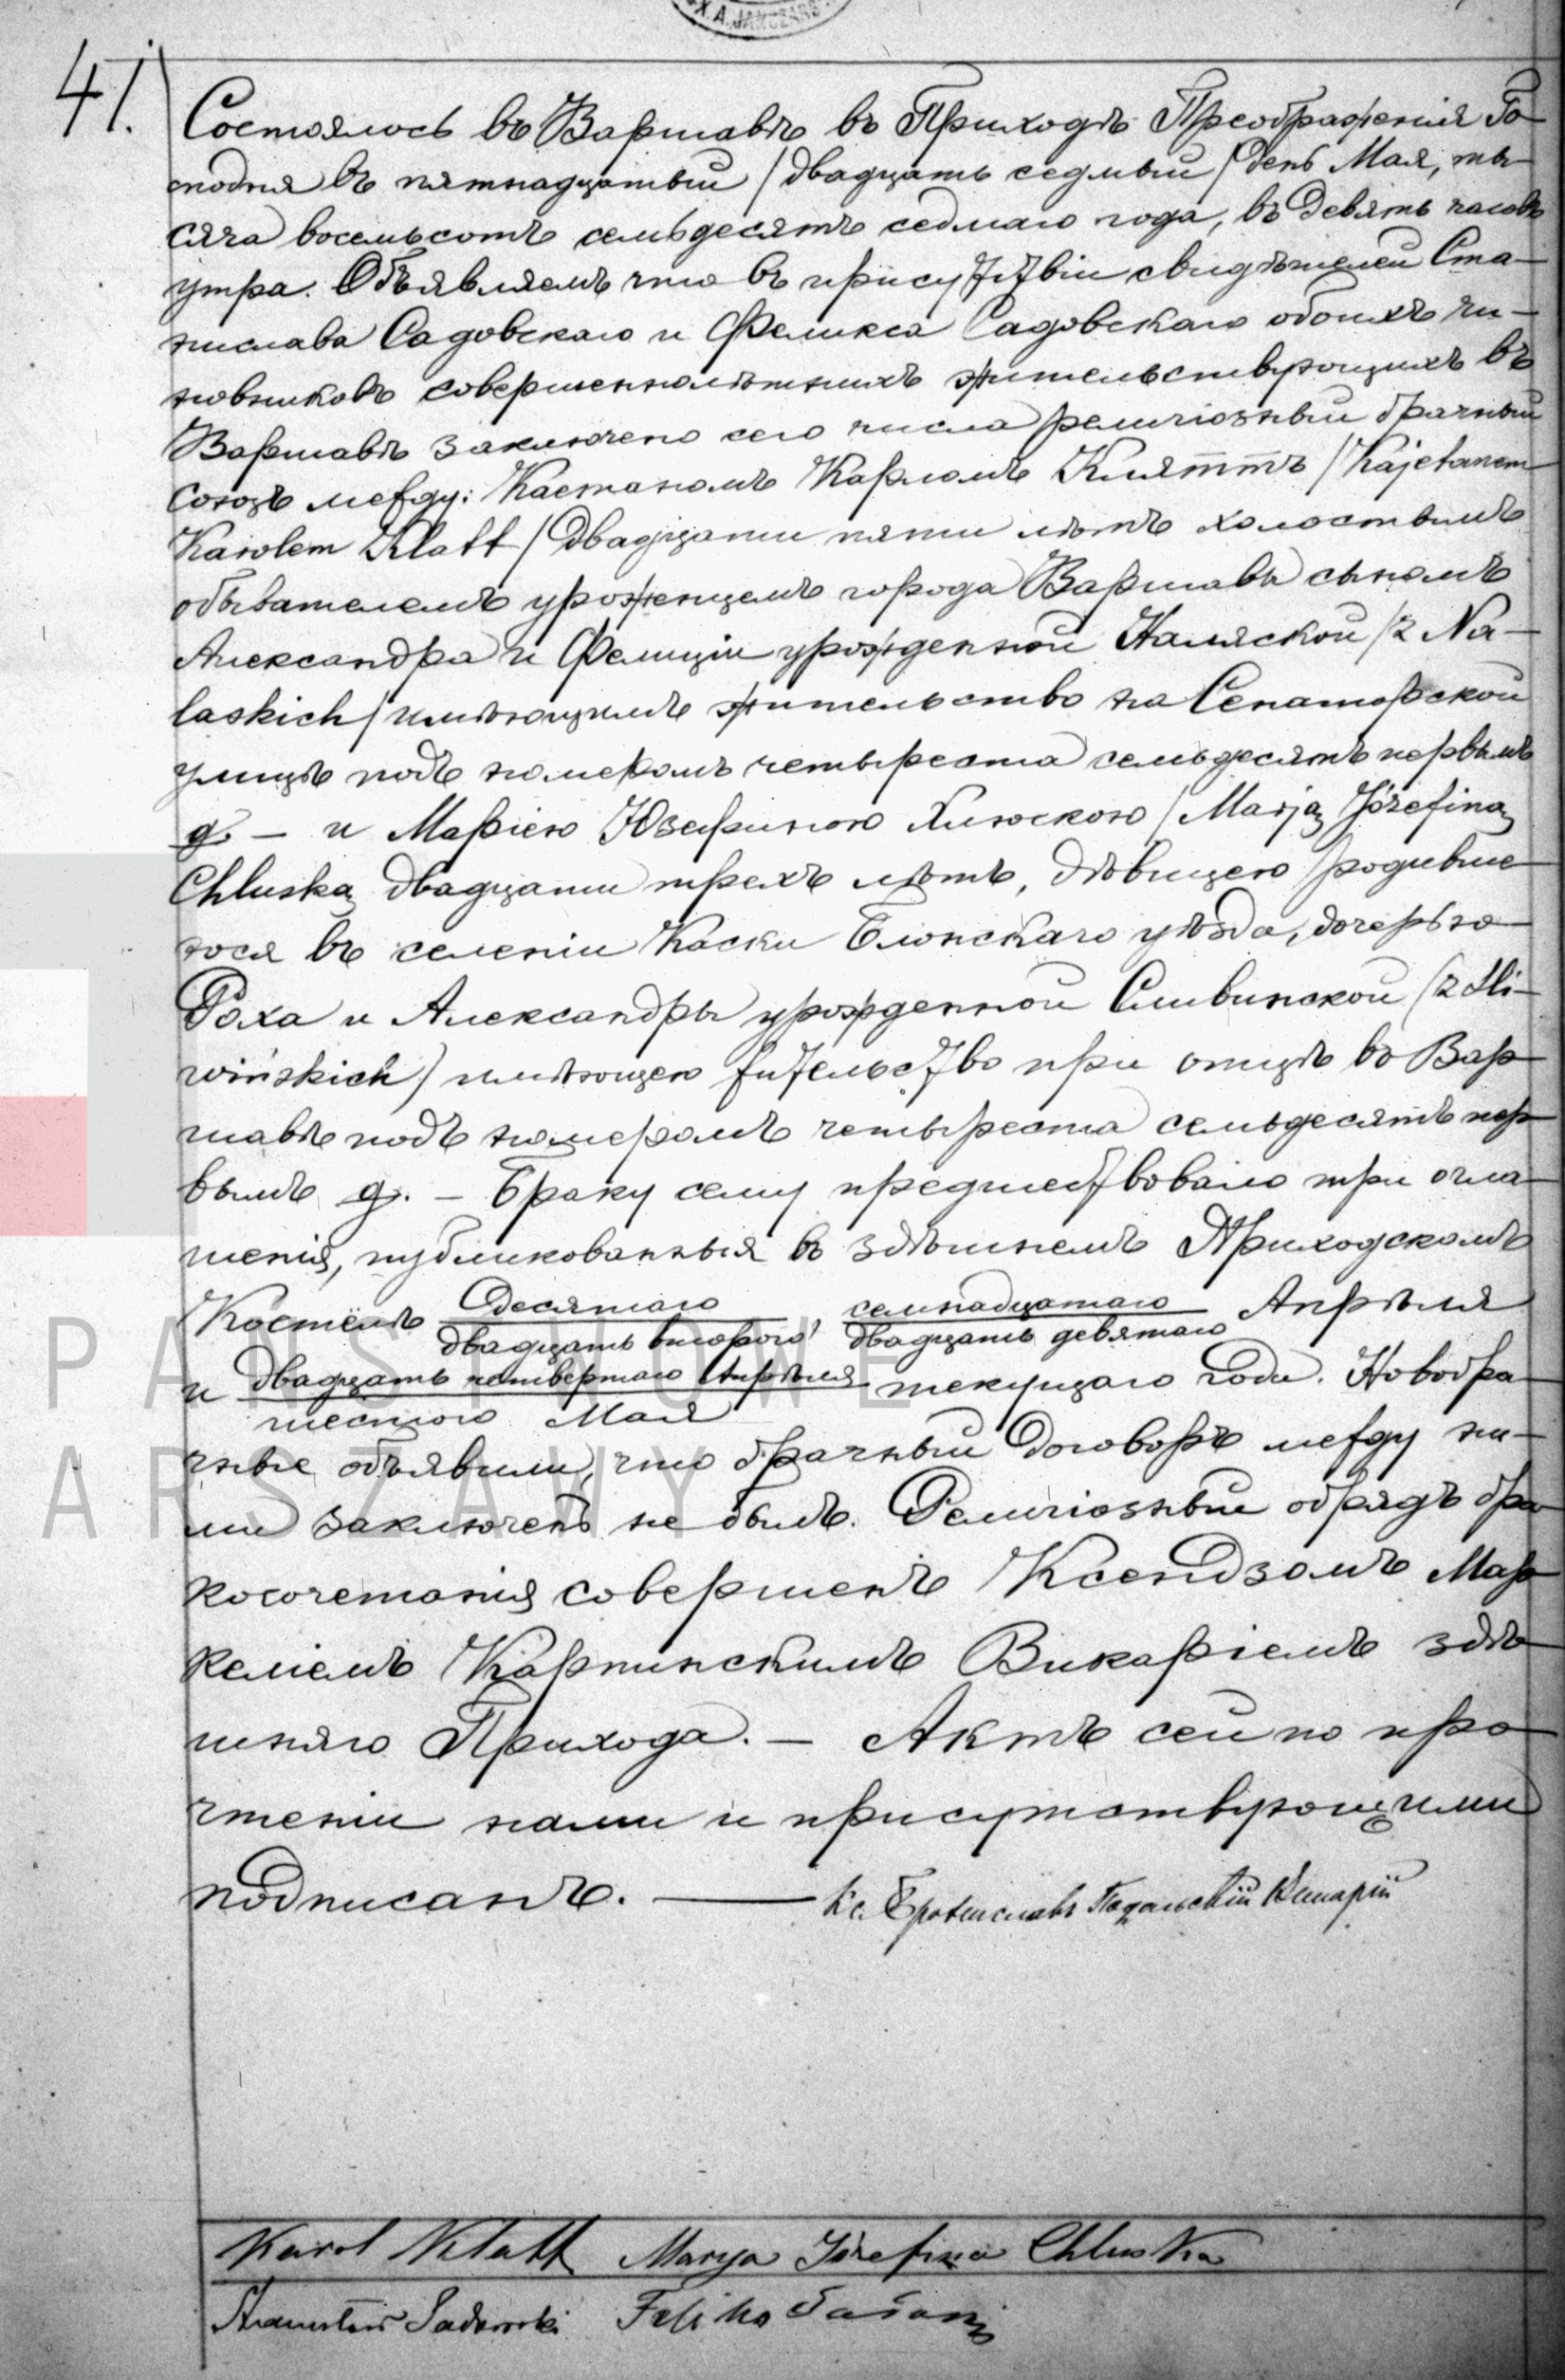 X. A. JANCZARS
41.
Состоялось въ Варшавѣ въ Приходѣ Преображенія Го-
сподня въ пятнадцатый /двадцать седмый/ день Мая, ты-
сяча восемьсотъ семьдесятъ седмаго года, въ девять часовъ
утра. Объявляемъ что въ присутствіи свидѣтелей Ста-
нислава Садовскаго и Феликса Садовскаго обоихъ чи-
новниковъ совершеннолѣтнихъ жительствующихъ въ
Варшавѣ заключено сего числа религіозный брачный
союзъ между: Каетаномъ Карломъ Кляттъ /Kajetanem
Karolem Klatt/ двадцати пяти лѣтъ холостымъ
обывателемъ уроженцемъ города Варшавы сыномъ
Александра и Фелиціи урожденной Наляской /z Na-
laskich/ имѣющимъ жительство на Сенаторской
улицѣ подъ номеромъ четыреста семьдесятъ первымъ
д. — и Маріею Юзефиною Хлюскою /Marją Józefiną
Chluską двадцати трехъ лѣтъ, дѣвицею родивше-
юся въ селеніи Каски Блонскаго уѣзда, дочерью
Роха и Александры урожденной Сливинской (z Sli-
wińskich) имѣющею жительство при отцѣ въ Вар-
шавѣ подъ номеромъ четыреста семьдесятъ пер-
вымъ д. — Браку сему предшествовало три огла-
шенія, публикованныя въ здѣшнемъ Приходскомъ
Костёлѣ десятаго / двадцать втораго, семнадцатаго / двадцать девятаго Апрѣля
и двадцать четвертаго Апрѣля / шестого Мая текущаго года. Новобра-
чные объявили, что брачный договоръ между ни-
ми заключенъ не былъ. Религіозный обрядъ бра-
косочетанія совершенъ Ксендзомъ Мар-
келіемъ Карпинскимъ Викаріемъ здѣ-
шняго Прихода. — Актъ сей по про-
чтеніи нами и присутствующими
подписанъ. — Кс. Брониславъ
PAŃSTWOWE
ARSZAWY
Karol Klatt Marya Józefina Chluska
Stanisław Sadowski Feliks